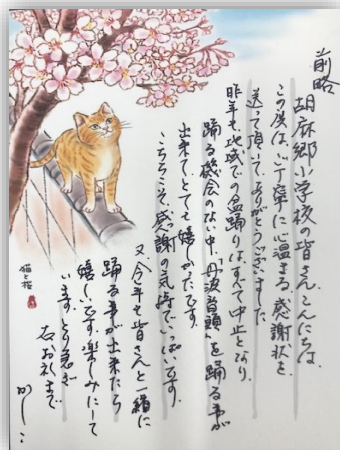 前略
胡麻郷小学校の皆さん、こんにちは。
この度は、ご丁寧に心温まる感謝状を
送って頂いて、ありがとうございました。
昨年も地域での盆踊りはすべて中止となり、
踊る機会のない中、丹波音頭を踊る事が
出来てとても嬉しかったです。
こちらこそ、感謝の気持でいっぱいです。
又、今年も皆さんと一緒に
踊る事が出来たら
嬉しいです。楽しみにして
います。とり急ぎ
お礼まで
かしこ
猫と桜